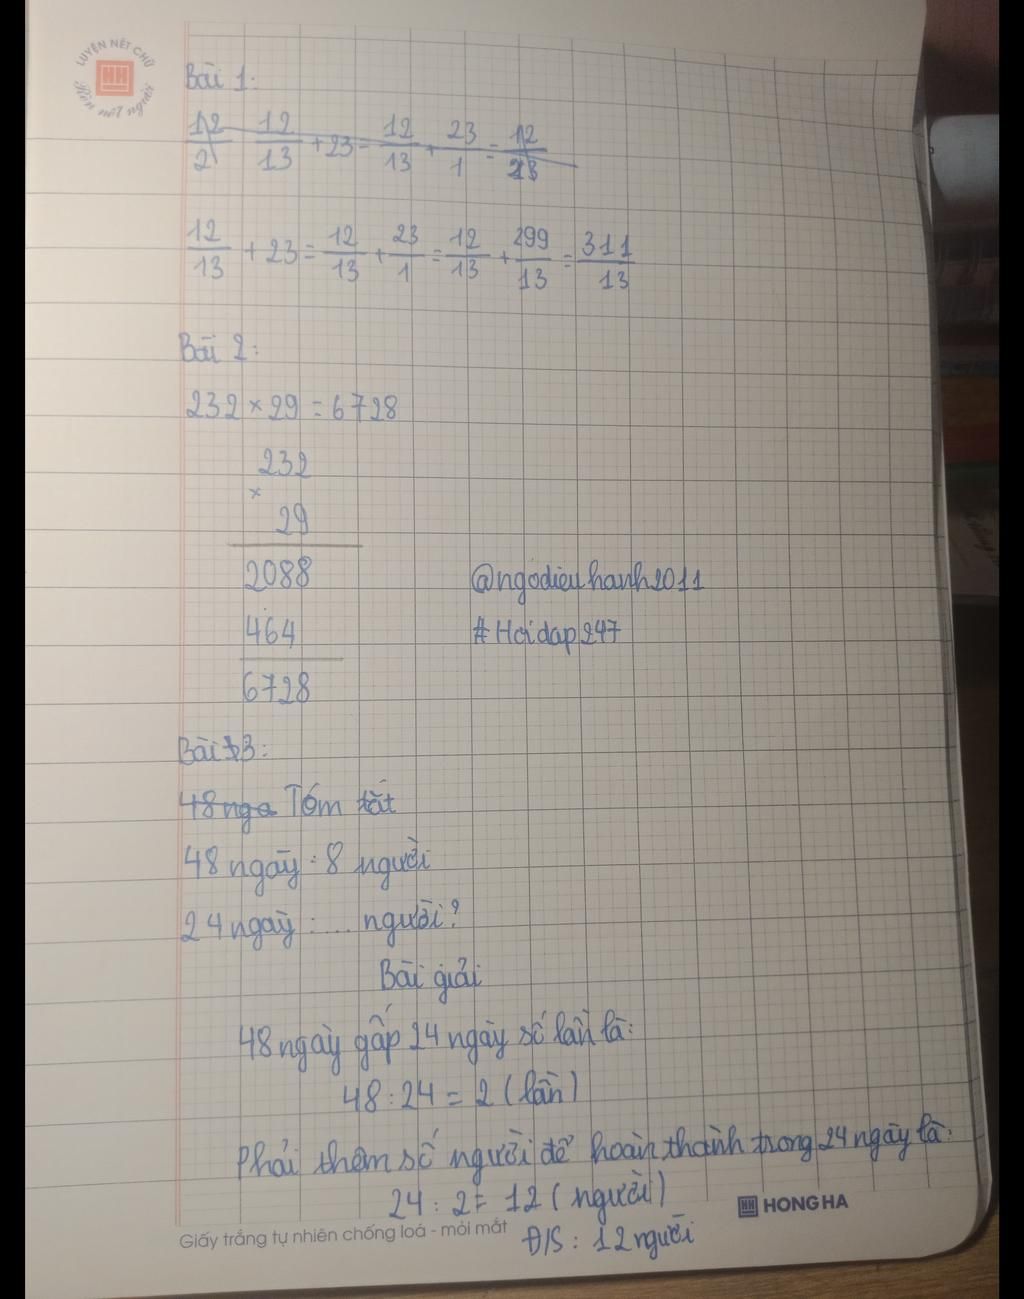 LUYỆN NÉT CHỮ
HH
Rèn nết người
Bài 1:
12/2 12/13 + 23 = 12/13 + 23/1 = 12/23
12/13 + 23 = 12/13 + 23/1 = 12/13 + 299/13 = 311/13
Bài 2:
232 × 29 = 6728
232
×
29
2088
464
6728
@ngodieuhanh2011
#Hoidap247
Bài 3:
48 ngà Tóm tắt
48 ngày : 8 người
24 ngày : ... người?
Bài giải
48 ngày gấp 24 ngày số lần là:
48 : 24 = 2 (lần)
Phải thêm số người để hoàn thành trong 24 ngày là:
24 : 2 = 12 (người)
Đ/S : 12 người
HH HONG HA
Giấy trắng tự nhiên chống loá - mỏi mắt